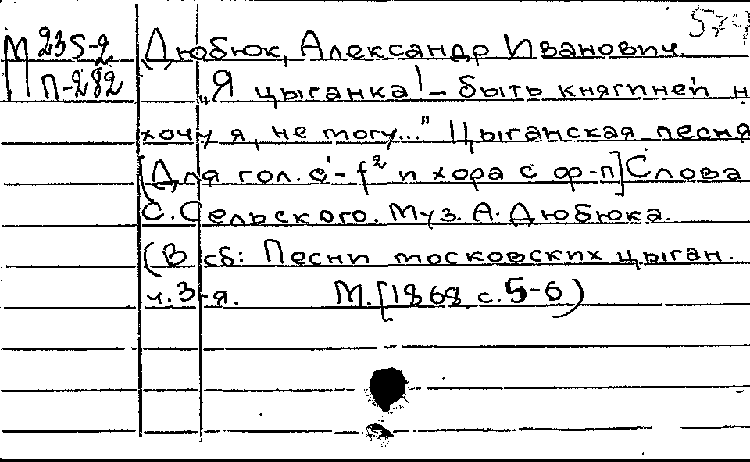 574
М 235-2 Дюбюк, Александр Иванович.
П-282 „Я цыганка! – быть княгиней н
хочу я, не могу..." Цыганская песня
[Для гол. e¹-f² и хора с ф-п] Слова
С. Сельского. Муз. А. Дюбюка.
(В сб: Песни московских цыган.
ч. 3-я. М. [1868 с. 5-6)